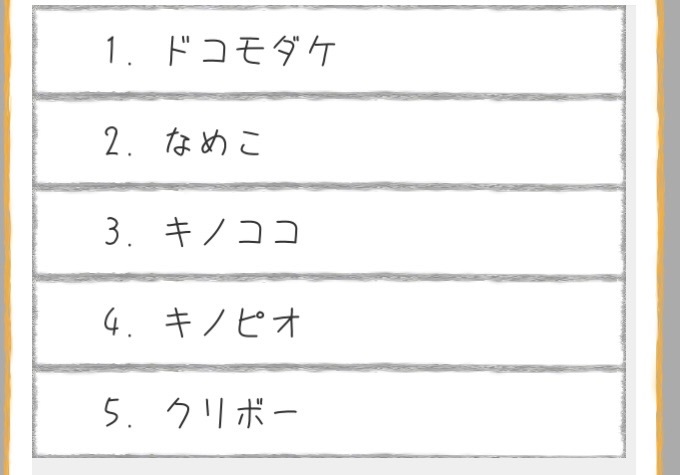 1. ドコモダケ
2. なめこ
3. キノココ
4. キノピオ
5. クリボー